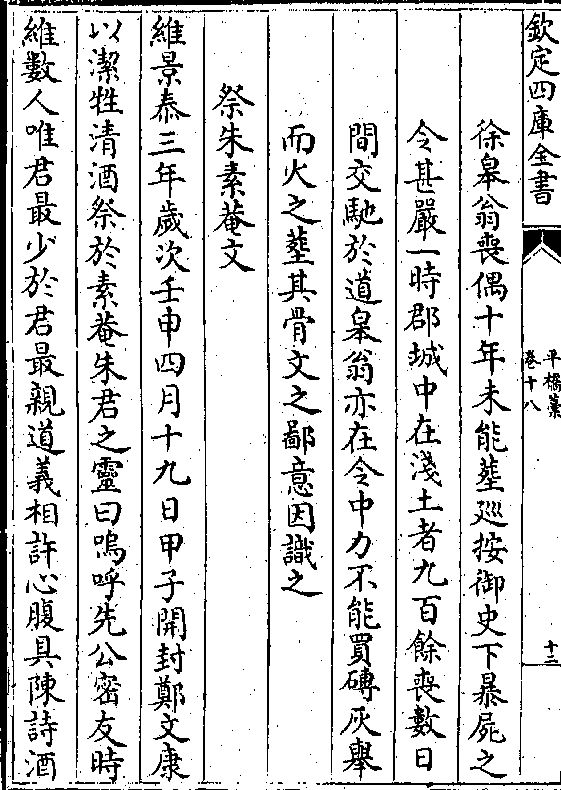 欽定四庫全書
平橋藁
卷十八
十三
徐皋翁喪偶十年未能塟廵按御史下暴屍之
令甚嚴一時郡城中在淺土者九百餘喪數日
間交馳於道皋翁亦在令中力不能買磚灰舉
而火之塟其骨文之鄙意因識之
祭朱素菴文
維景泰三年歲次壬申四月十九日甲子開封鄭文康
以潔牲清酒祭於素菴朱君之靈曰嗚呼先公密友時
維數人唯君最少於君最親道義相許心腹具陳詩酒